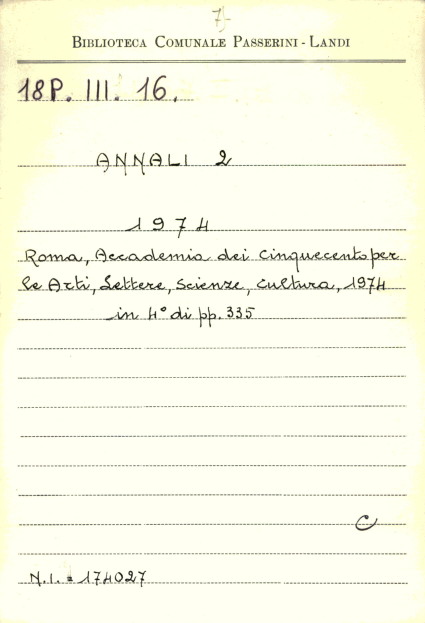 7)-
BIBLIOTECA COMUNALE PASSERINI - LANDI
18P. III. 16.
ANNALI 2
1974
Roma, Accademia dei Cinquecento per
le Arti, Lettere, Scienze, Cultura, 1974
in 4° di pp. 335
C
N.I. = 174027